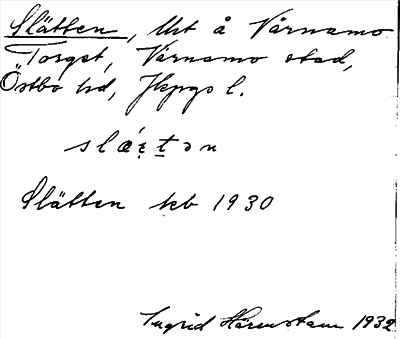 Slätten, Utt å Värnamo
Torget, Värnamo stad,
Östbo hd, Jkpgs l.
slǽt̠ən
Slätten kb 1930
Ingrid 1932